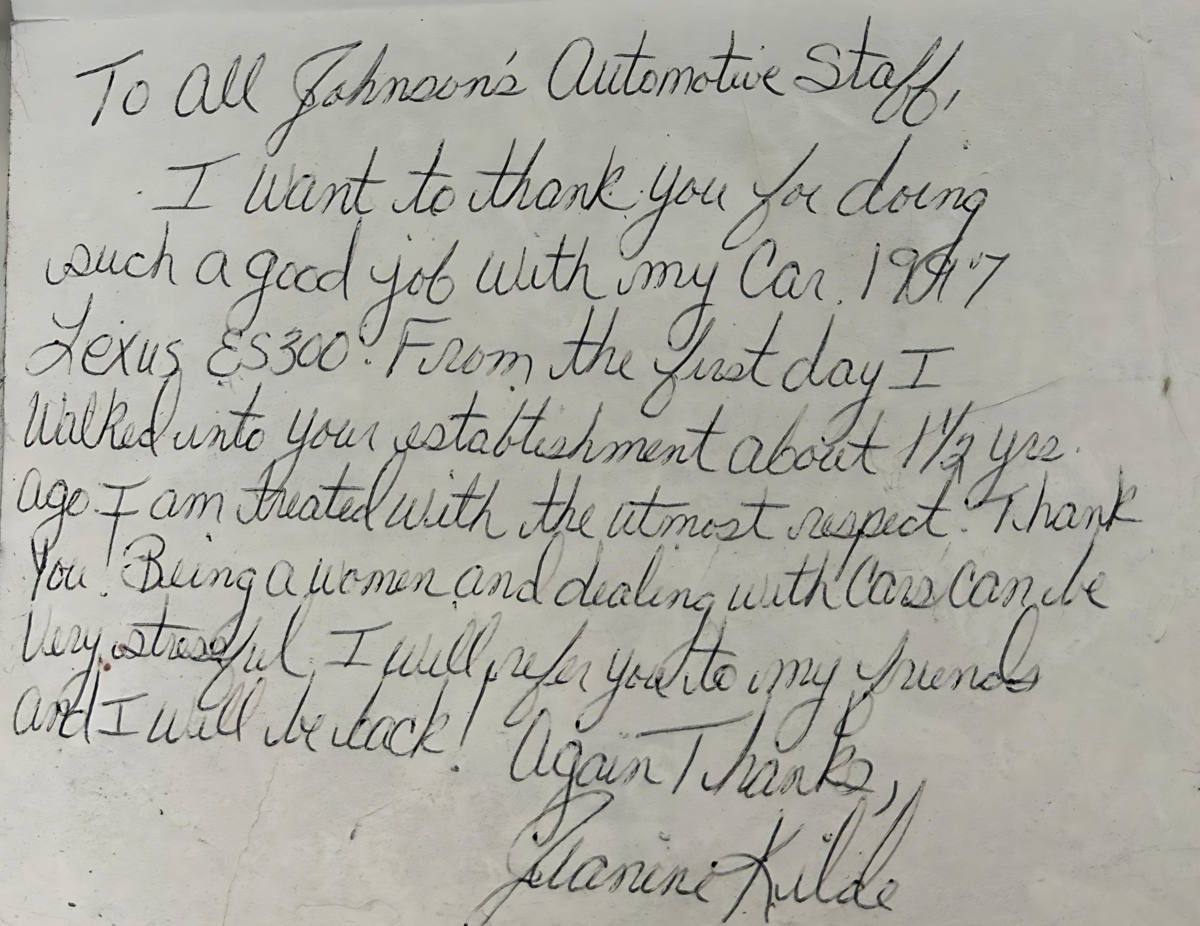 To All Johnson's Automotive Staff,
I want to thank you for doing
such a good job with my Car. 1997
Lexus ES300. From the first day I
Walked into your establishment about 1 1/2 yrs.
ago I am treated with the utmost respect. Thank
You! Being a women and dealing with Cars Can be
Very stressful. I will refer you to my friends
and I will be back! Again Thanks,
Jeanine Kilde